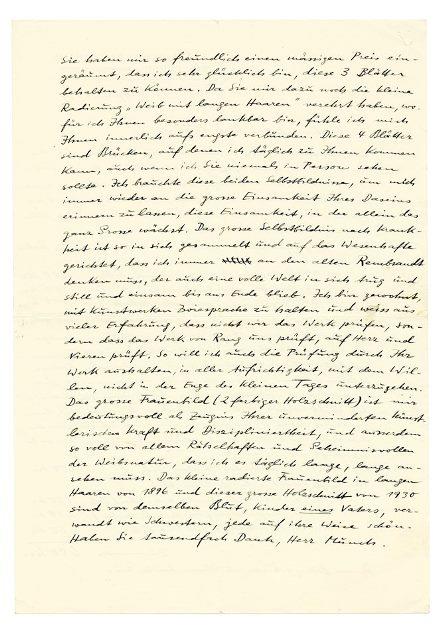 Sie haben mir so freundlich einen mässigen Preis ein-
geräumt, dass ich sehr glücklich bin, diese 3 Blätter
behalten zu können. Da Sie mir dazu noch die kleine
Radierung „Weib mit langen Haaren" verehrt haben, wo-
für ich Ihnen besonders dankbar bin, fühle ich mich
Ihnen innerlich aufs engste verbunden. Diese 4 Blätter
sind Brücken, auf denen ich täglich zu Ihnen kommen
kann, auch wenn ich Sie niemals in Person sehen
sollte. Ich brauchte diese beiden Selbstbildnisse, um mich
immer wieder an die grosse Einsamkeit Ihres Daseins
erinnern zu lassen, diese Einsamkeit, in der allein das
ganz Grosse wächst. Das grosse Selbstbildnis nach Krank-
heit ist so in sich gesammelt und auf das Wesenhafte
gerichtet, dass ich immer an den alten Rembrandt
denken muss, der auch eine volle Welt in sich trug und
still und einsam bis ans Ende blieb. Ich bin gewohnt,
mit Kunstwerken Zwiesprache zu halten und weiss aus
vieler Erfahrung, dass nicht wir das Werk prüfen, son-
dern dass das Werk von Rang uns prüft, auf Herz und
Nieren prüft. So will ich auch die Prüfung durch Ihr
Werk aushalten, in aller Aufrichtigkeit, mit dem Wil-
len, nicht in der Enge des kleinen Tages unterzugehen.
Das grosse Frauenbild (2 farbiger Holzschnitt) ist mir
bedeutungsvoll als Zeugnis Ihrer unverminderten künst-
lerischen Kraft und Diszipliniertheit, und ausserdem
so voll von allem Rätselhaften und Geheimnisvollen
der Weibsnatur, dass ich es täglich lange, lange an-
sehen muss. Das kleine radierte Frauenbild in langen
Haaren von 1896 und dieser grosse Holzschnitt von 1930
sind von demselben Blut, Kinder eines Vaters, ver-
wandt wie Schwestern, jede auf ihre Weise schön.
Haben Sie tausendfach Dank, Herr Münch.